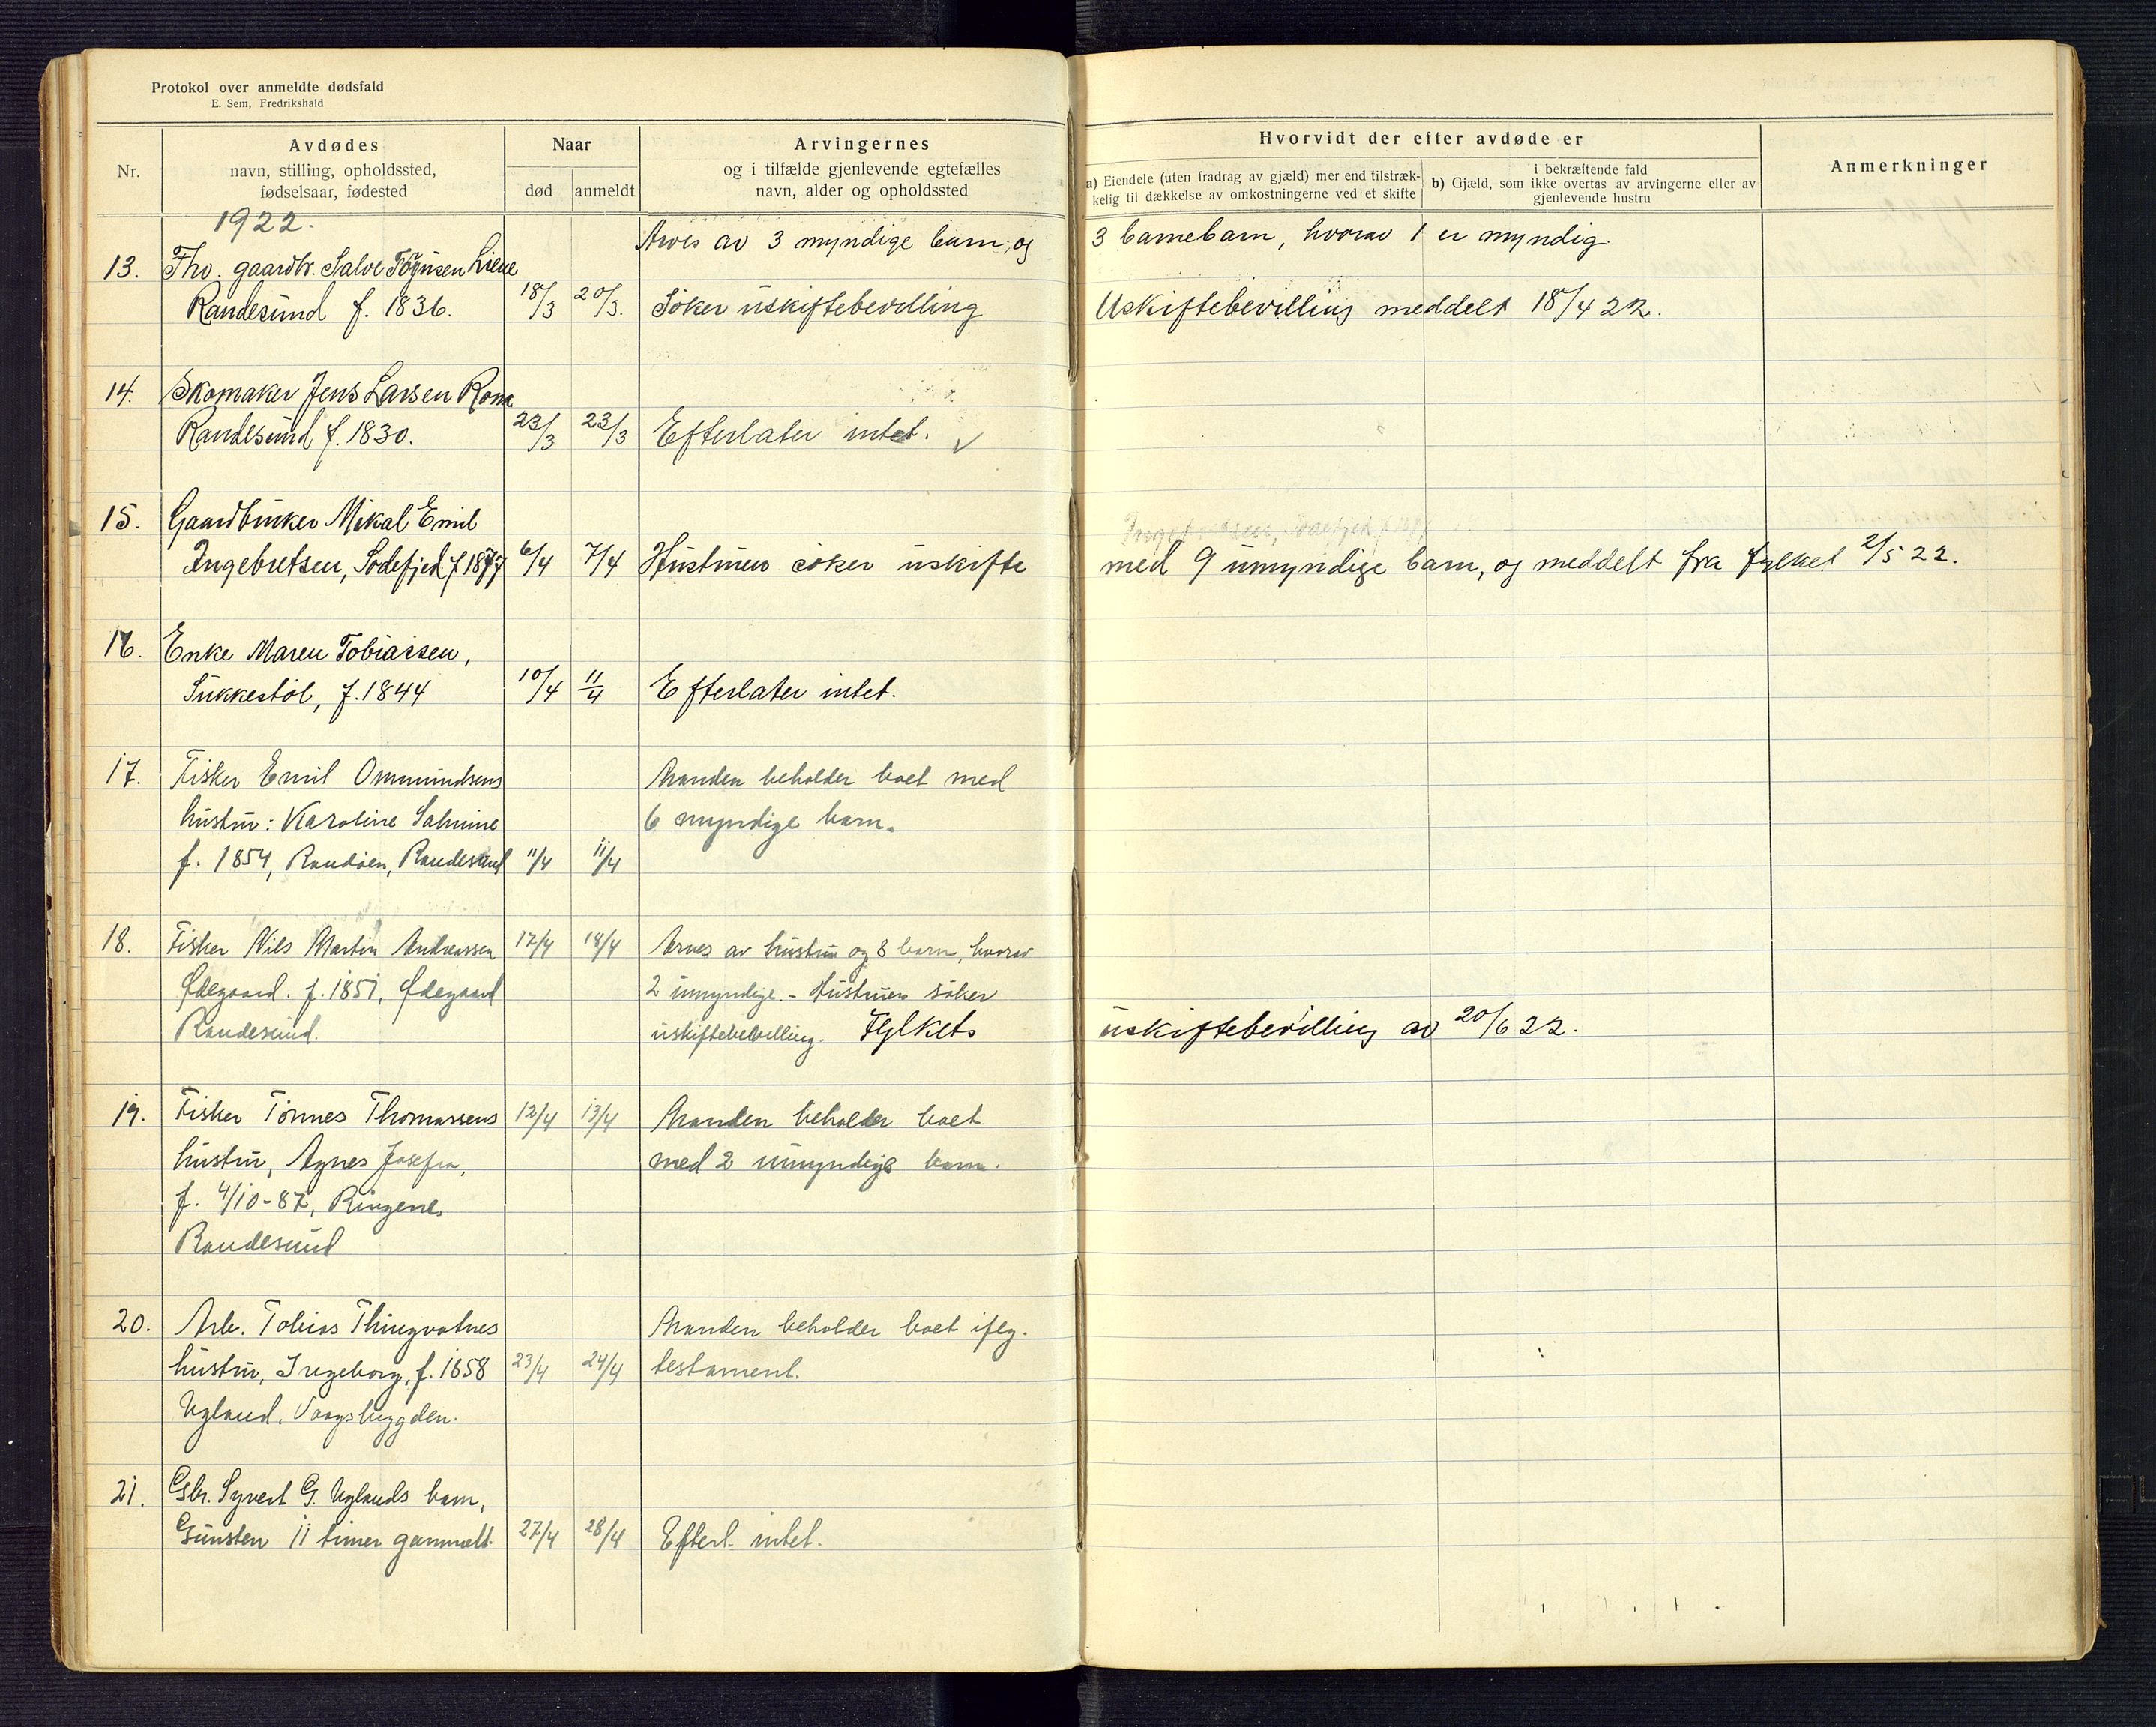 Protokol over anmeldte dødsfald
E. Sem, Fredrikshald
Nr.
Avdødes
navn, stilling, opholdssted,
fødselsaar, fødested
Naar
død
anmeldt
Arvingernes
og i tilfælde gjenlevende egtefælles
navn, alder og opholdssted
Hvorvidt der efter avdøde er
a) Eiendele (uten fradrag av gjæld) mer end tilstræk-
kelig til dækkelse av omkostningerne ved et skifte
i bekræftende fald
b) Gjæld, som ikke overtas av arvingerne eller av
gjenlevende hustru
Anmerkninger
1922.
Arves av 3 myndige barn, og 3 barnebarn, hvorav 1 er myndig.
13. Fhv. gaardbr. Salve
Randesund f. 1836. 18/3 20/3. Søker uskiftebevilling Uskiftebevilling meddelt 18/4 22.
14. Skomaker Jens Larsen Rona
Randesund f. 1830. 23/3 23/3 Efterlater intet. ✓
15. Gaardbruker Mikal Emil
Ingebretsen, Sodefjed f 1877 6/4 7/4 Hustruen søker uskifte med 9 umyndige barn, og meddelt fra fylket 2/5 22.
16. Enke Maren Tobiassen,
Sukkestøl, f. 1844 10/4 11/4 Efterlater intet.
17. Fisker Emil Ommundsens Manden beholder boet med
hustru: Karoline Salmine 6 myndige barn.
f. 1854, Randøen, Randesund 11/4 11/4
18. Fisker Nils Martin Andreassen 17/4 18/4 Arves av hustru og 8 barn, hvorav
Ødegaard. f. 1851, Ødegaard 2 umyndige. - Hustruen søker
Randesund. uskiftebevilling. Fylkets uskiftebevilling av 20/6 22.
19. Fisker Tønnes Thomassens 12/4 13/4 Manden beholder boet
hustru, Agnes Josefa, med 2 umyndige barn.
f. 4/10-87, Ringene,
Randesund
20. Arb. Tobias Thingvatnes Manden beholder boet iflg.
hustru, Ingeborg, f. 1858 23/4 24/4 testament.
Ugland, Vaagsbygden.
21. Gbr. Syvert G. Uglands barn,
Gunsten 11 timer gammelt. 27/4 28/4 Efterl. intet.